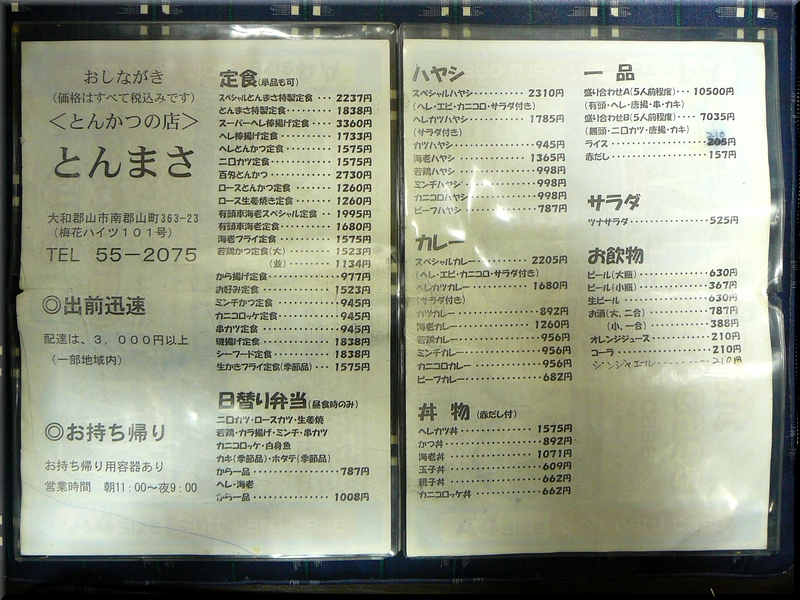 おしながき
（価格はすべて税込みです）
＜とんかつの店＞
とんまさ
大和郡山市南郡山町363-23
（梅花ハイツ１０１号）
TEL 55－2075
◎出前迅速
配達は、３，０００円以上
（一部地域内）
◎お持ち帰り
お持ち帰り用容器あり
営業時間 朝11：00～夜9：00
定食(単品も可)
スペシャルとんまさ特製定食 ･･･ 2237円
とんまさ特製定食 ･････････ 1838円
スーパーヘレ棒揚げ定食 ･･･ 3360円
ヘレ棒揚げ定食 ･････････ 1733円
ヘレとんかつ定食 ･････････ 1575円
二口カツ定食 ･････････ 1575円
百匁とんかつ ･････････ 2730円
ロースとんかつ定食 ･････････ 1260円
ロース生姜焼き定食 ･････････ 1260円
有頭車海老スペシャル定食 ･･･ 1995円
有頭車海老定食 ･････････ 1680円
海老フライ定食 ･････････ 1575円
若鶏かつ定食(大) ･････････ 1523円
(並) ･････････ 1134円
から揚げ定食 ･････････ 977円
お好み定食 ･････････ 1523円
ミンチかつ定食 ･････････ 945円
カニコロッケ定食 ･････････ 945円
串カツ定食 ･････････ 945円
磯揚げ定食 ･････････ 1838円
シーフード定食 ･････････ 1838円
生かきフライ定食(季節品) ･･･ 1575円
日替り弁当(昼食時のみ)
二口カツ・ロースカツ・生姜焼
若鶏・カラ揚げ・ミンチ・串カツ
カニコロッケ・白身魚
カキ(季節品)・ホタテ(季節品)
から一品 ･････････ 787円
ヘレ・海老
から一品 ･････････ 1008円
ハヤシ
スペシャルハヤシ ･････････ 2310円
(ヘレ・エビ・カニコロ・サラダ付き)
ヘレカツハヤシ ･････････ 1785円
(サラダ付き)
カツハヤシ ･････････ 945円
海老ハヤシ ･････････ 1365円
若鶏ハヤシ ･････････ 998円
ミンチハヤシ ･････････ 998円
カニコロハヤシ ･････････ 998円
ビーフハヤシ ･････････ 787円
カレー
スペシャルカレー ･････････ 2205円
(ヘレ・エビ・カニコロ・サラダ付き)
ヘレカツカレー ･････････ 1680円
(サラダ付き)
カツカレー ･････････ 892円
海老カレー ･････････ 1260円
若鶏カレー ･････････ 956円
ミンチカレー ･････････ 956円
カニコロカレー ･････････ 956円
ビーフカレー ･････････ 682円
丼 物 (赤だし付)
ヘレカツ丼 ･････････ 1575円
かつ丼 ･････････ 892円
海老丼 ･････････ 1071円
玉子丼 ･････････ 609円
親子丼 ･････････ 662円
カニコロッケ丼 ･････････ 662円
一 品
盛り合わせA(5人前程度) ･･･ 10500円
(有頭・ヘレ・唐揚・串・カキ)
盛り合わせB(5人前程度) ･･･ 7035円
(無頭・二口カツ・唐揚・カキ)
ライス ･････････ 210円
赤だし ･････････ 157円
サラダ
ツナサラダ ･････････ 525円
お飲物
ビール(大瓶) ･････････ 630円
ビール(小瓶) ･････････ 367円
生ビール ･････････ 630円
お酒(大、二合) ･････････ 787円
(小、一合) ･････････ 388円
オレンジジュース ･････････ 210円
コーラ ･････････ 210円
ジンジャエール ･････････ 210円